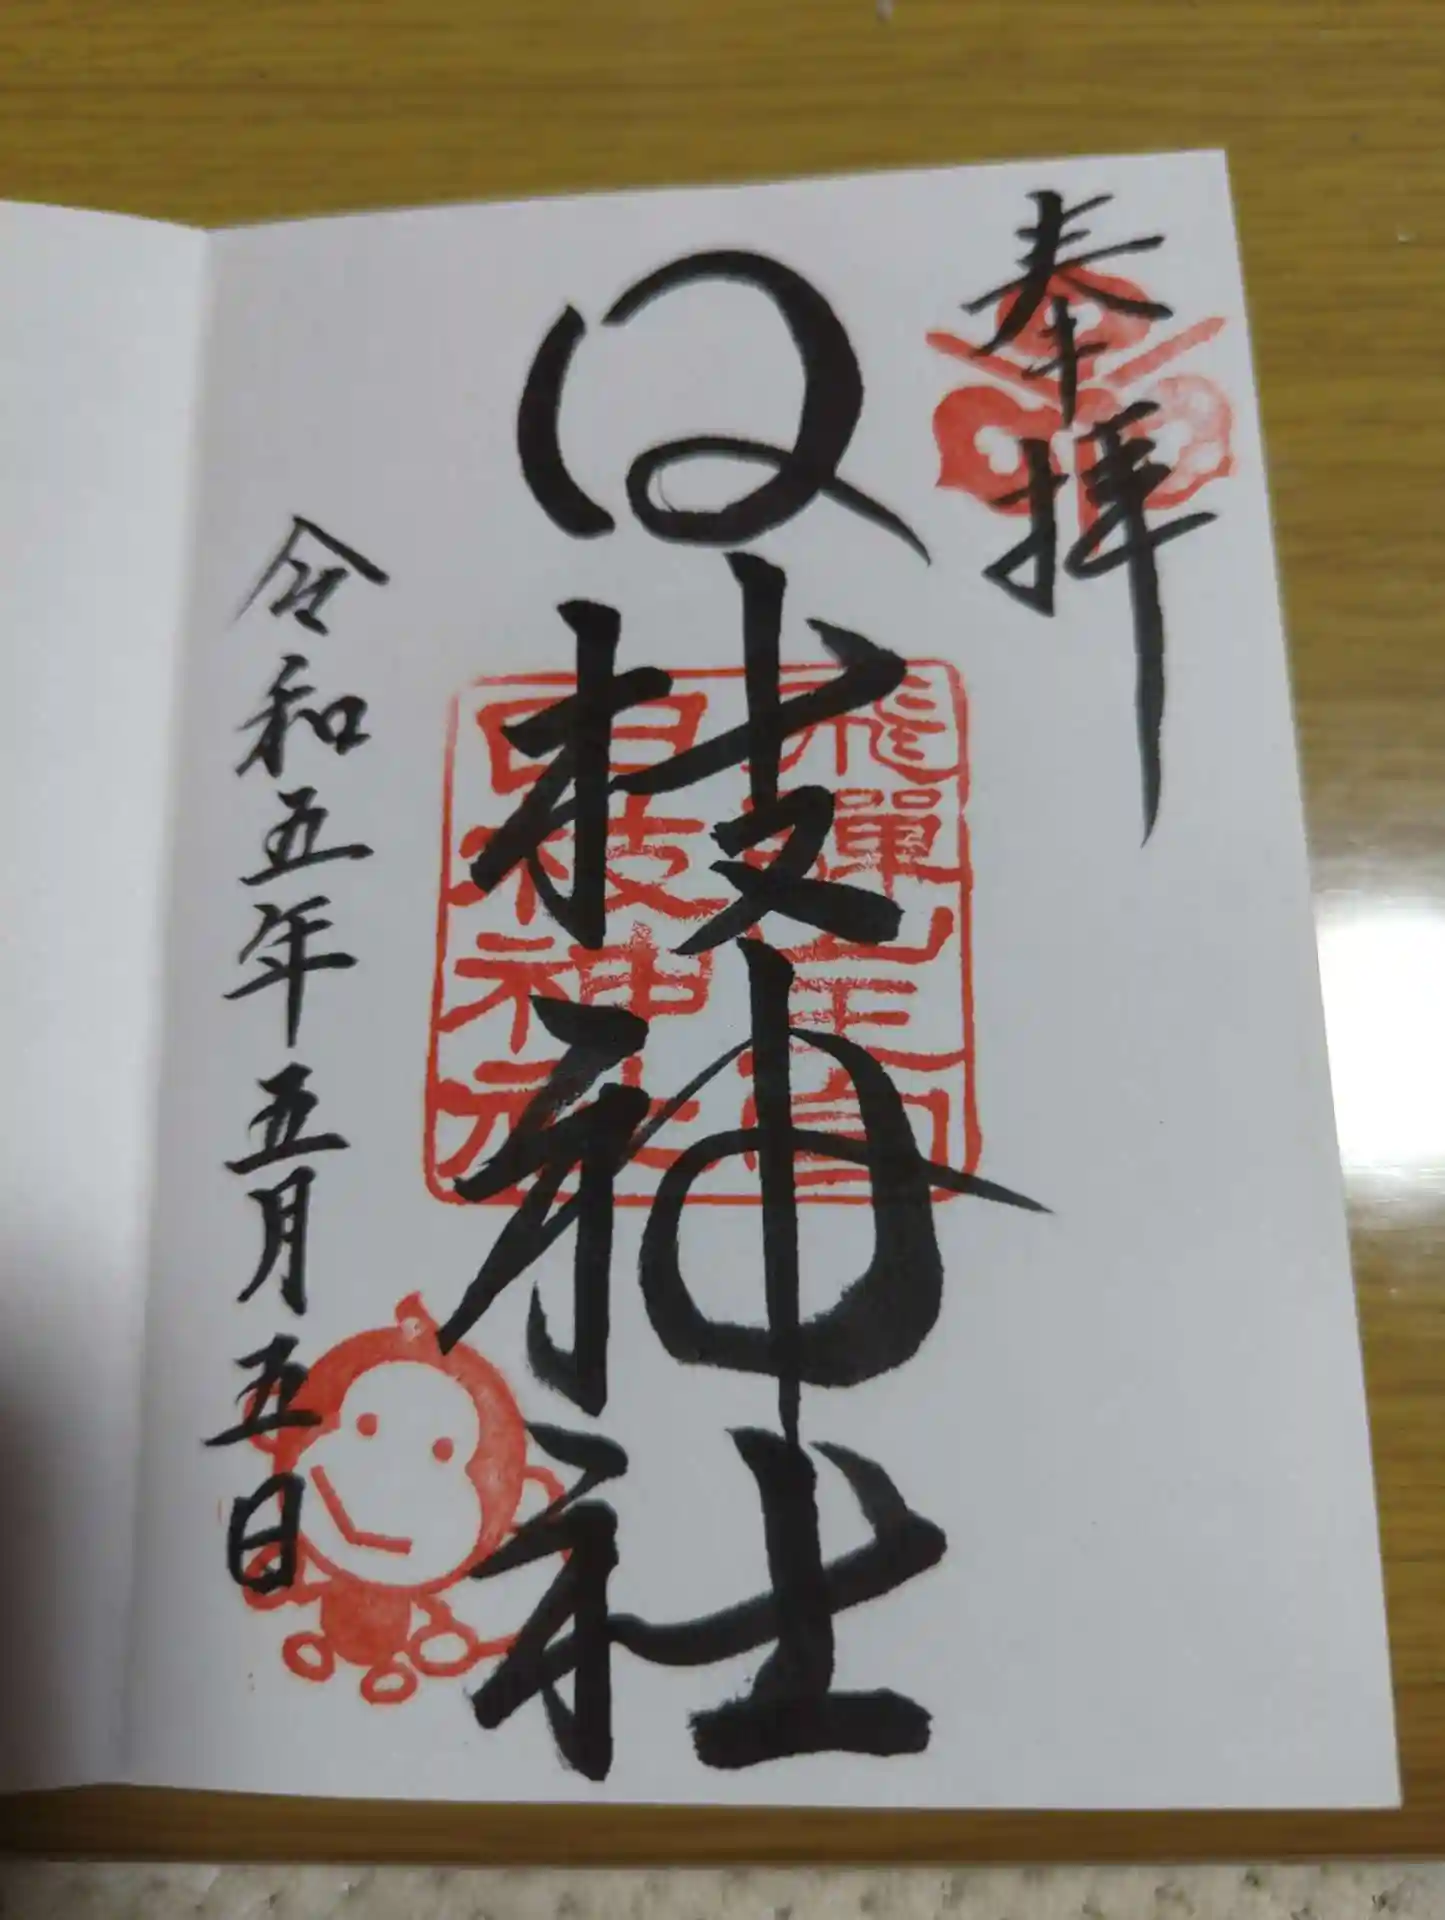 奉拝
日枝神社
飛驒山王宮
日枝神社
令和五年五月五日